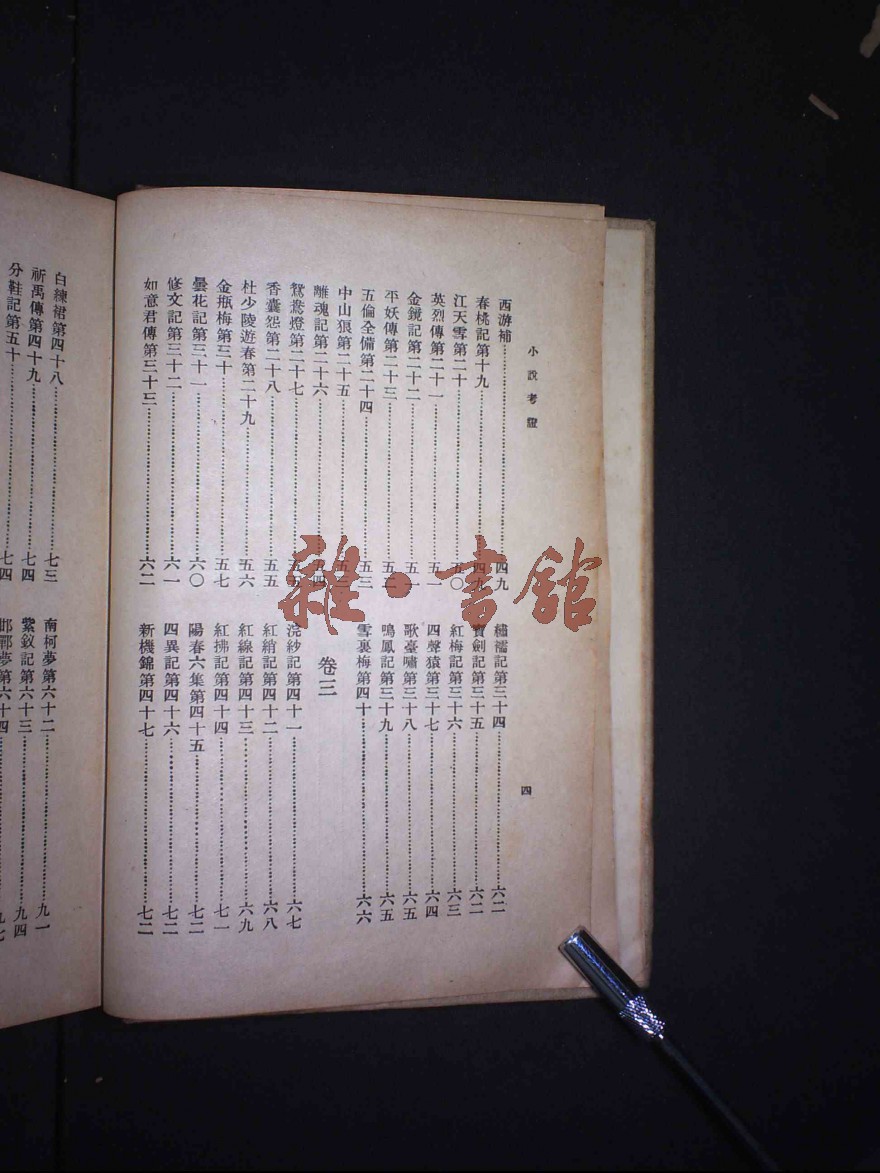 小說考證
西游補……四九
春桃記第十九……四九
江天雪第二十……五〇
英烈傳第二十一……五一
金鏡記第二十二……五一
平妖傳第二十三……五二
五倫全備第二十四……五三
中山狼第二十五……五三
離魂記第二十六……五四
鴛鴦燈第二十七……五五
香囊怨第二十八……五五
杜少陵遊春第二十九……五六
金瓶梅第三十……五七
曇花記第三十一……六〇
修文記第三十二……六一
如意君傳第三十三……六二
繡襦記第三十四……六二
寶劍記第三十五……六二
紅梅記第三十六……六三
四聲猿第三十七……六四
歌臺嘯第三十八……六五
鳴鳳記第三十九……六五
雪裏梅第四十……六六
卷三
浣紗記第四十一……六七
紅綃記第四十二……六八
紅線記第四十三……六九
紅拂記第四十四……七一
陽春六集第四十五……七二
四異記第四十六……七二
新機錦第四十七……七二
四
白練裙第四十八……七三
祈禹傳第四十九……七四
分鞋記第五十……七四
南柯夢第六十二……九一
紫釵記第六十三……九四
邯鄲夢第六十四……九七
雜·書館